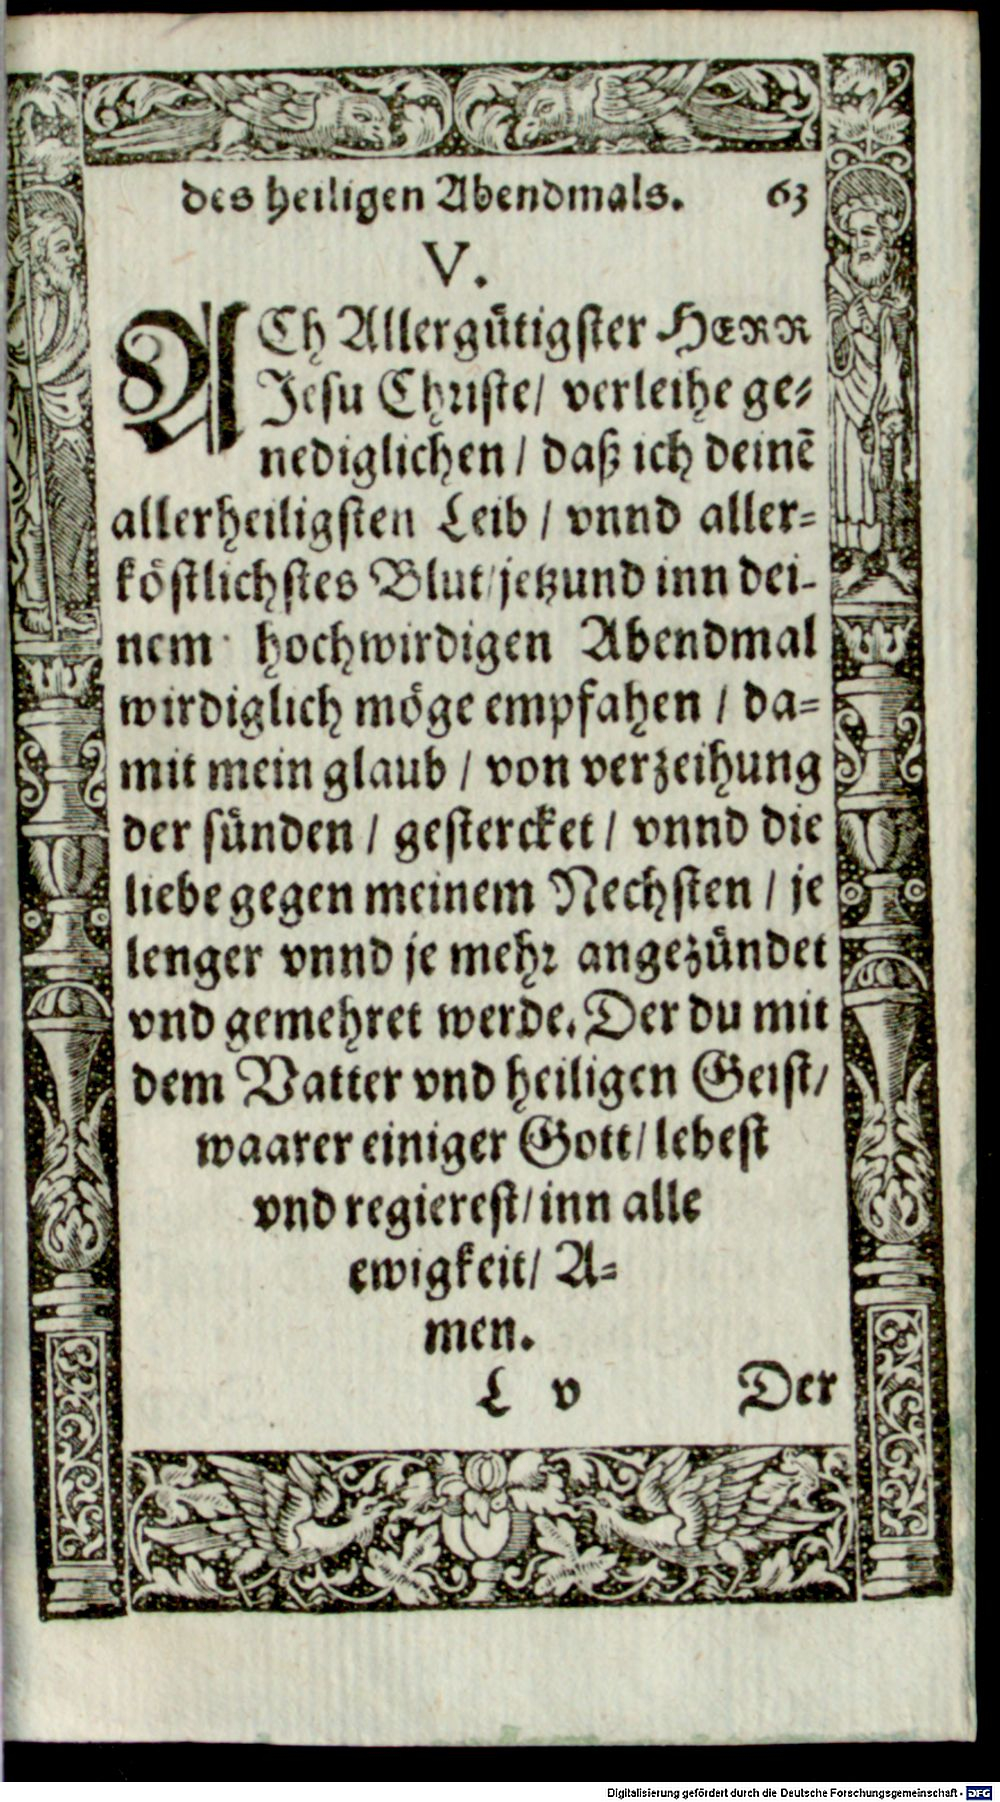 des heiligen Abendmals. 63
V.
ACh Allergütigster HERR
Jesu Christe/ verleihe ge-
nediglichen/ daß ich deinē
allerheiligsten Leib/ vnnd aller-
köstlichstes Blut/jetzund inn dei-
nem hochwirdigen Abendmal
wirdiglich möge empfahen/ da-
mit mein glaub/ von verzeihung
der sünden/ gestercket/ vnnd die
liebe gegen meinem Nechsten/ je
lenger vnnd je mehr angezündet
vnd gemehret werde. Der du mit
dem Vatter vnd heiligen Geist/
waarer einiger Gott/ lebest
vnd regierest/ inn alle
ewigkeit/ A-
men.
L v Der
Digitalisierung gefördert durch die Deutsche Forschungsgemeinschaft - DFG